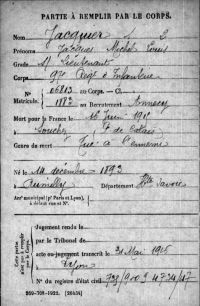 PARTIE À REMPLIR PAR LE CORPS.
Nom Jacquier
Prénoms Jacques Michel Louis
Grade Lieutenant
Corps 97e Regt d'Infanterie
N° 06813 au Corps. — Cl.
Matricule. 1882 au Recrutement Annecy
Mort pour la France le 16 Juin 1915
à Souchez Pas de Calais
Genre de mort Tué à l'ennemi
Né le 14 décembre 1893
à Rumilly Département Hte Savoie
Arrt municipal (pr Paris et Lyon),
à défaut rue et N°.
Cette partie
n'est pas à remplir
par le Corps.
Jugement rendu le
par le Tribunal de
acte ou jugement transcrit le 31 Mai 1915
à Lyon
N° du registre d'état civil